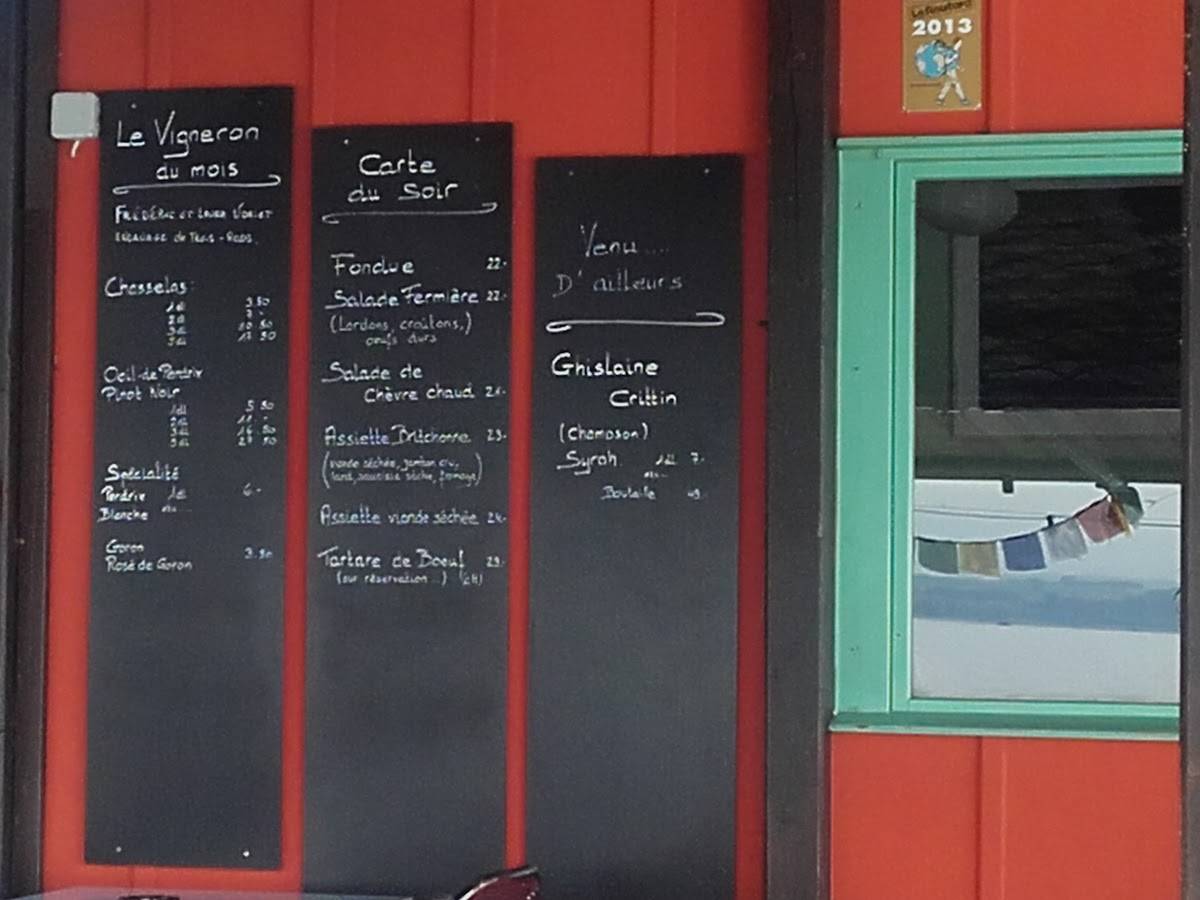 Le Vigneron
du mois
FRÉDÉRIC ET
Chasselas
1dl 3.50
2dl 7.-
3dl 10.50
5dl 17.50
Oeil-de-Perdrix
Pinot Noir
1dl 5.50
2dl 11.-
3dl 16.50
5dl 27.50
Spécialité
Perdrix 1dl 6.-
Blanche
Goron
Rosé de Goron 3.50
Carte
du Soir
Fondue 22.-
Salade Fermière 22.-
(Lardons, croûtons,)
oeufs durs
Salade de
Chèvre chaud
Assiette
(viande séchée, jambon cru,
lard, saucisse sèche, fromage)
Assiette viande séchée
Tartare de Boeuf
(sur réservation...)
Venu....
D'ailleurs
Ghislaine
Crittin
(Chamoson)
Syrah 1dl 7.-
Bouteille
2013